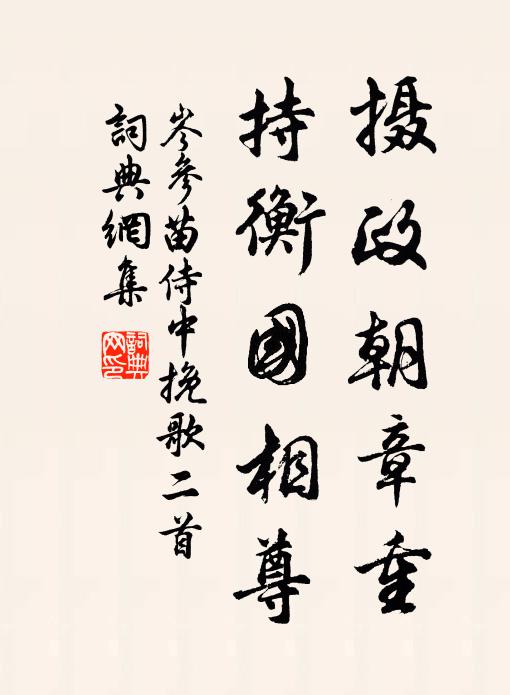 摄政朝章重
持衡國相尊
岑參苗侍中挽歌二首
詞典網集
詞典网印